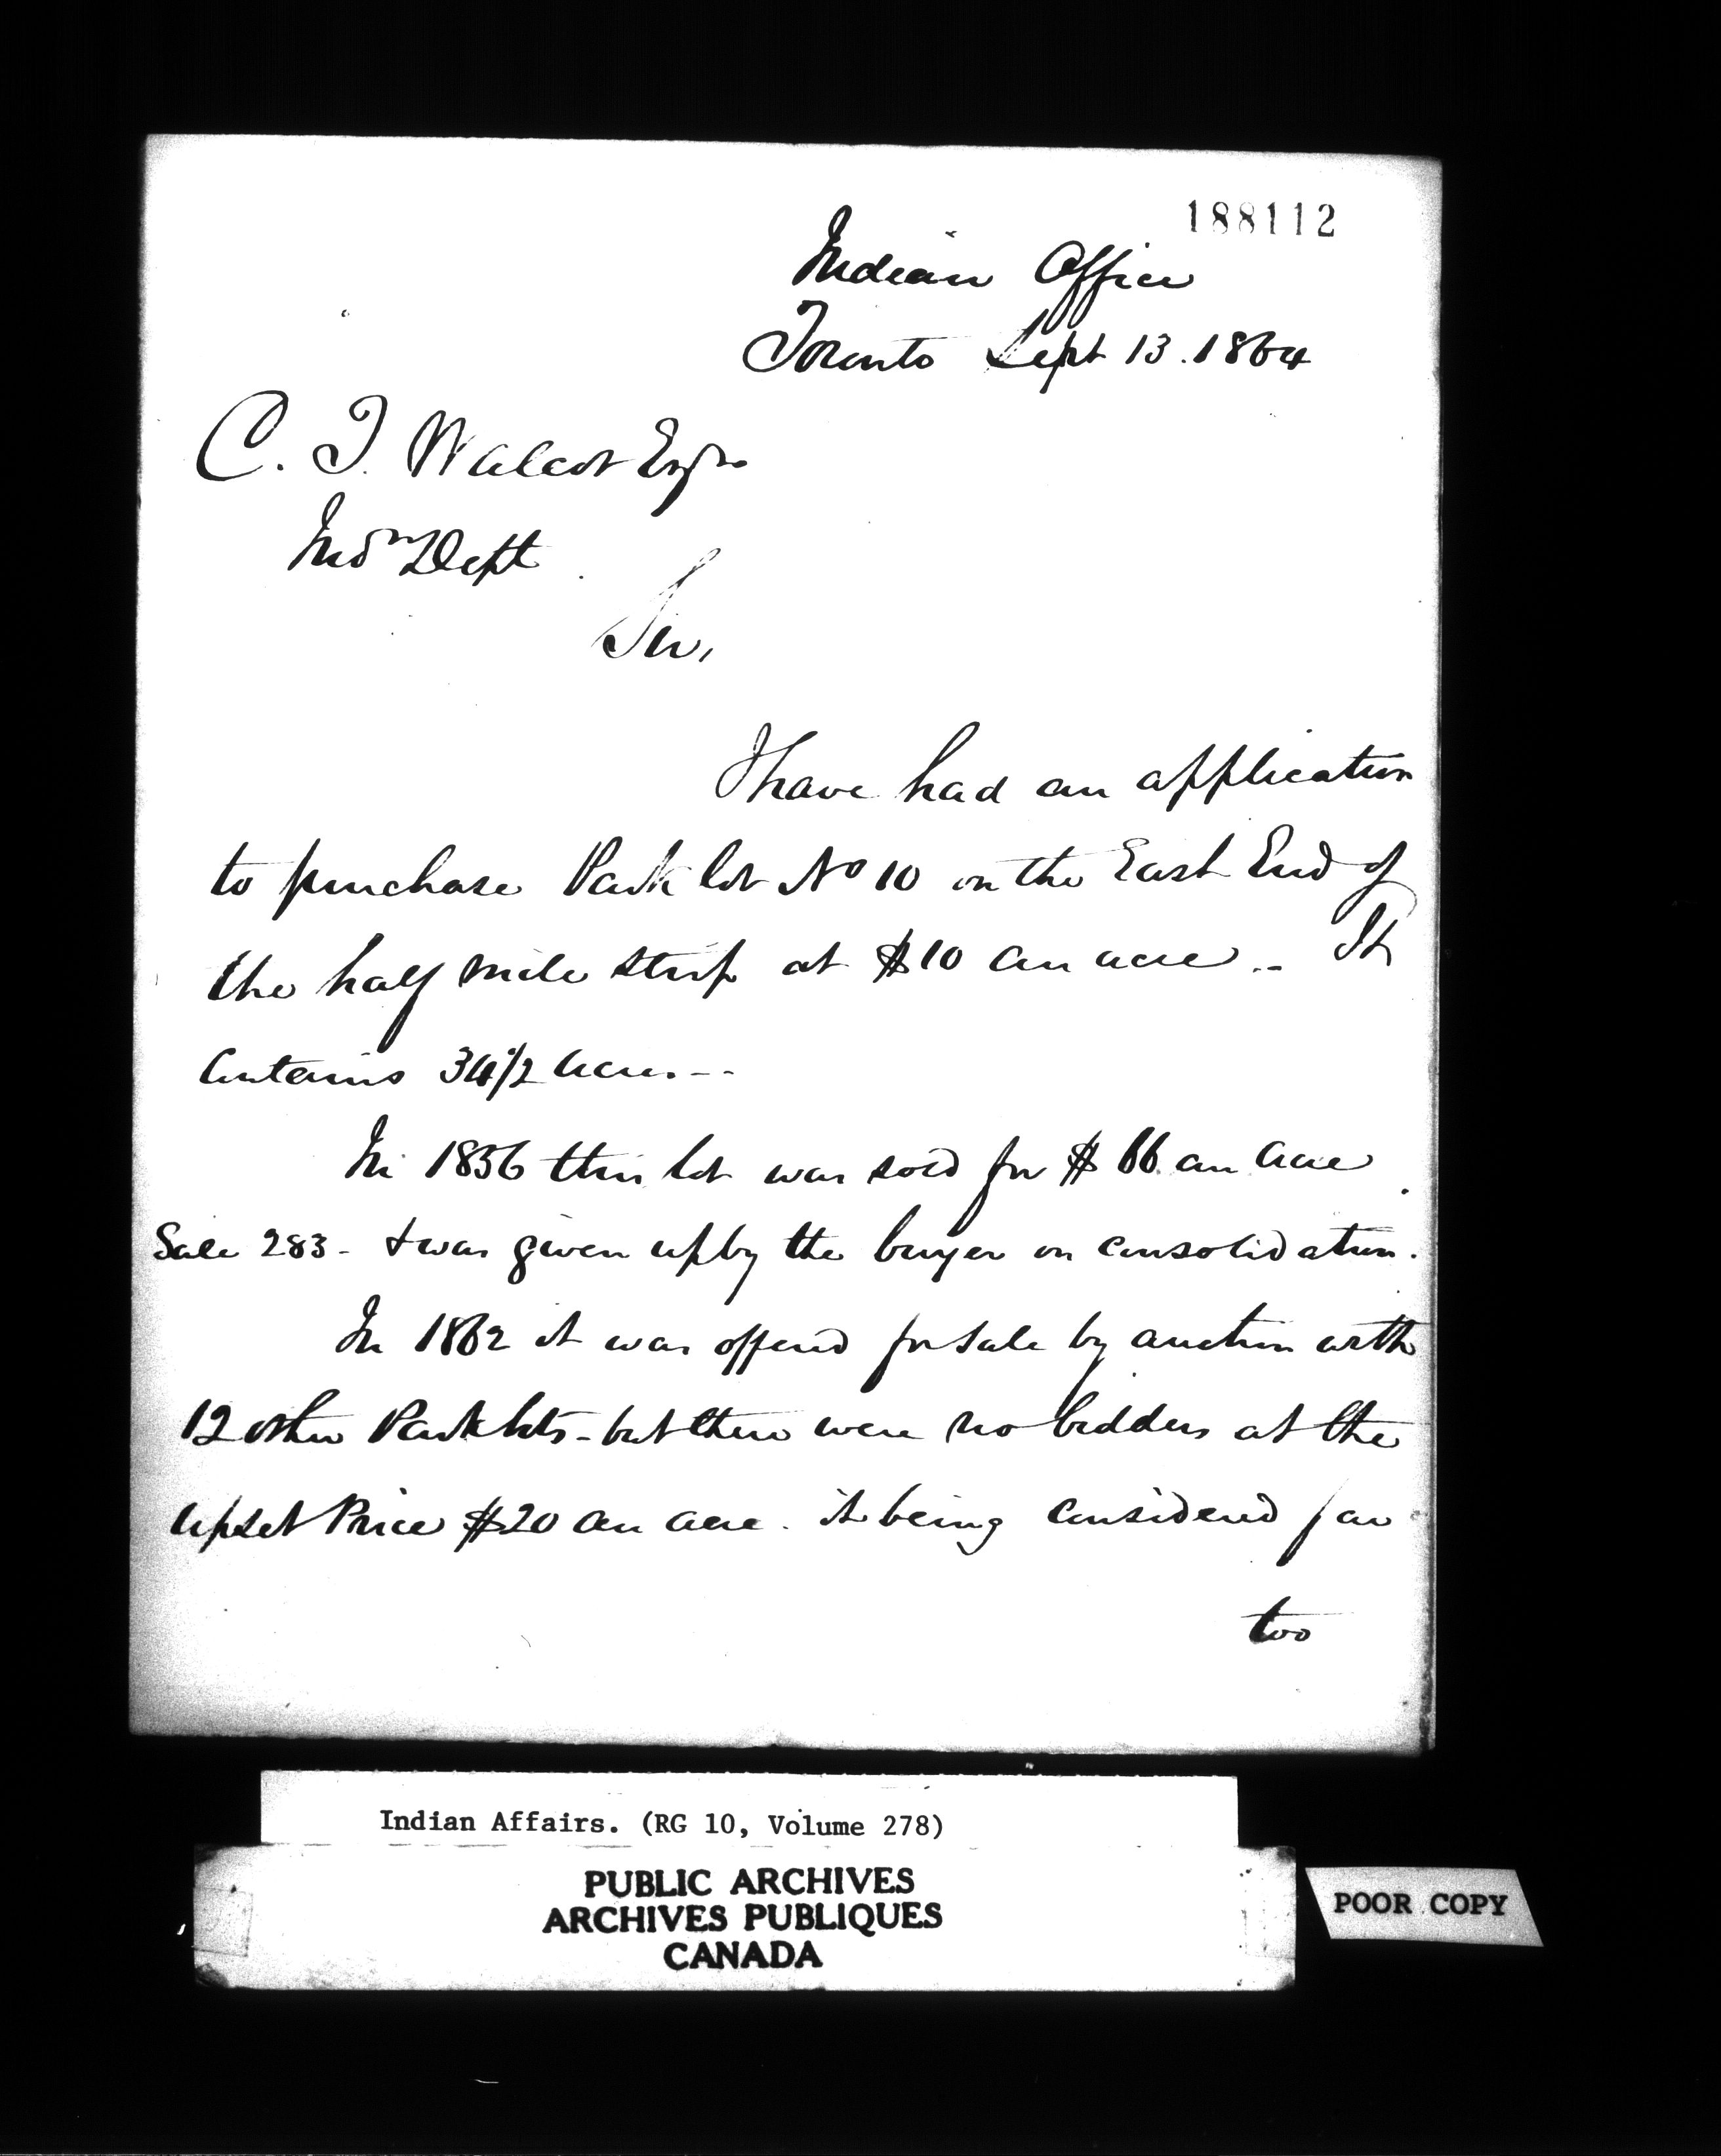 188112
Indian Office
Toronto Sept 13. 1864
C. T. Walcot Esqre
Indn Dept.
Sir,
I have had an application
to purchase Park lot No 10 on the East End of
the half mile strip at $10 an acre -- It
contains 34 1/2 acres. --
In 1856 this lot was sold for $66 an acre.
Sale 283 - & was given up by the buyer on consolidation.
In 1862 it was offered for sale by auction with
12 other Park lots - but there were no bidders at the
upset Price $20 an acre. it being considered far
too
Indian Affairs. (RG 10, Volume 278)
PUBLIC ARCHIVES
ARCHIVES PUBLIQUES
CANADA
POOR COPY